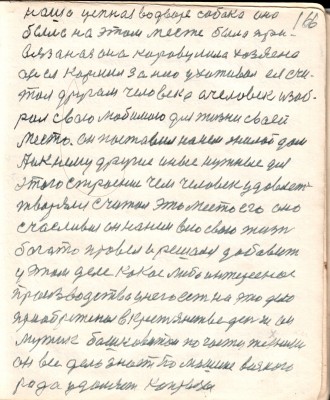 166
наша цепная во дворе собака она
была на этом месте была при-
вязаная она караулила хозяена
он ея кормил за нею ухаживал ея счи-
тал другом человека а человек изоб-
рал свою любимою для жизни своей
место. он поставил на нем жилой дом
А к нему другие и вые нужные для
этого строение чем человек удовлет-
творялся считал это место его оно
счасливое он на нем всю свою жизнь
богато провел и решался добавить
у этом деле какое либо интересное
производства у него есть на это дело
приобретеная в крестьянстве ден и он
мужик башковитый по части техники
он все дело знает по машине всякого
рода